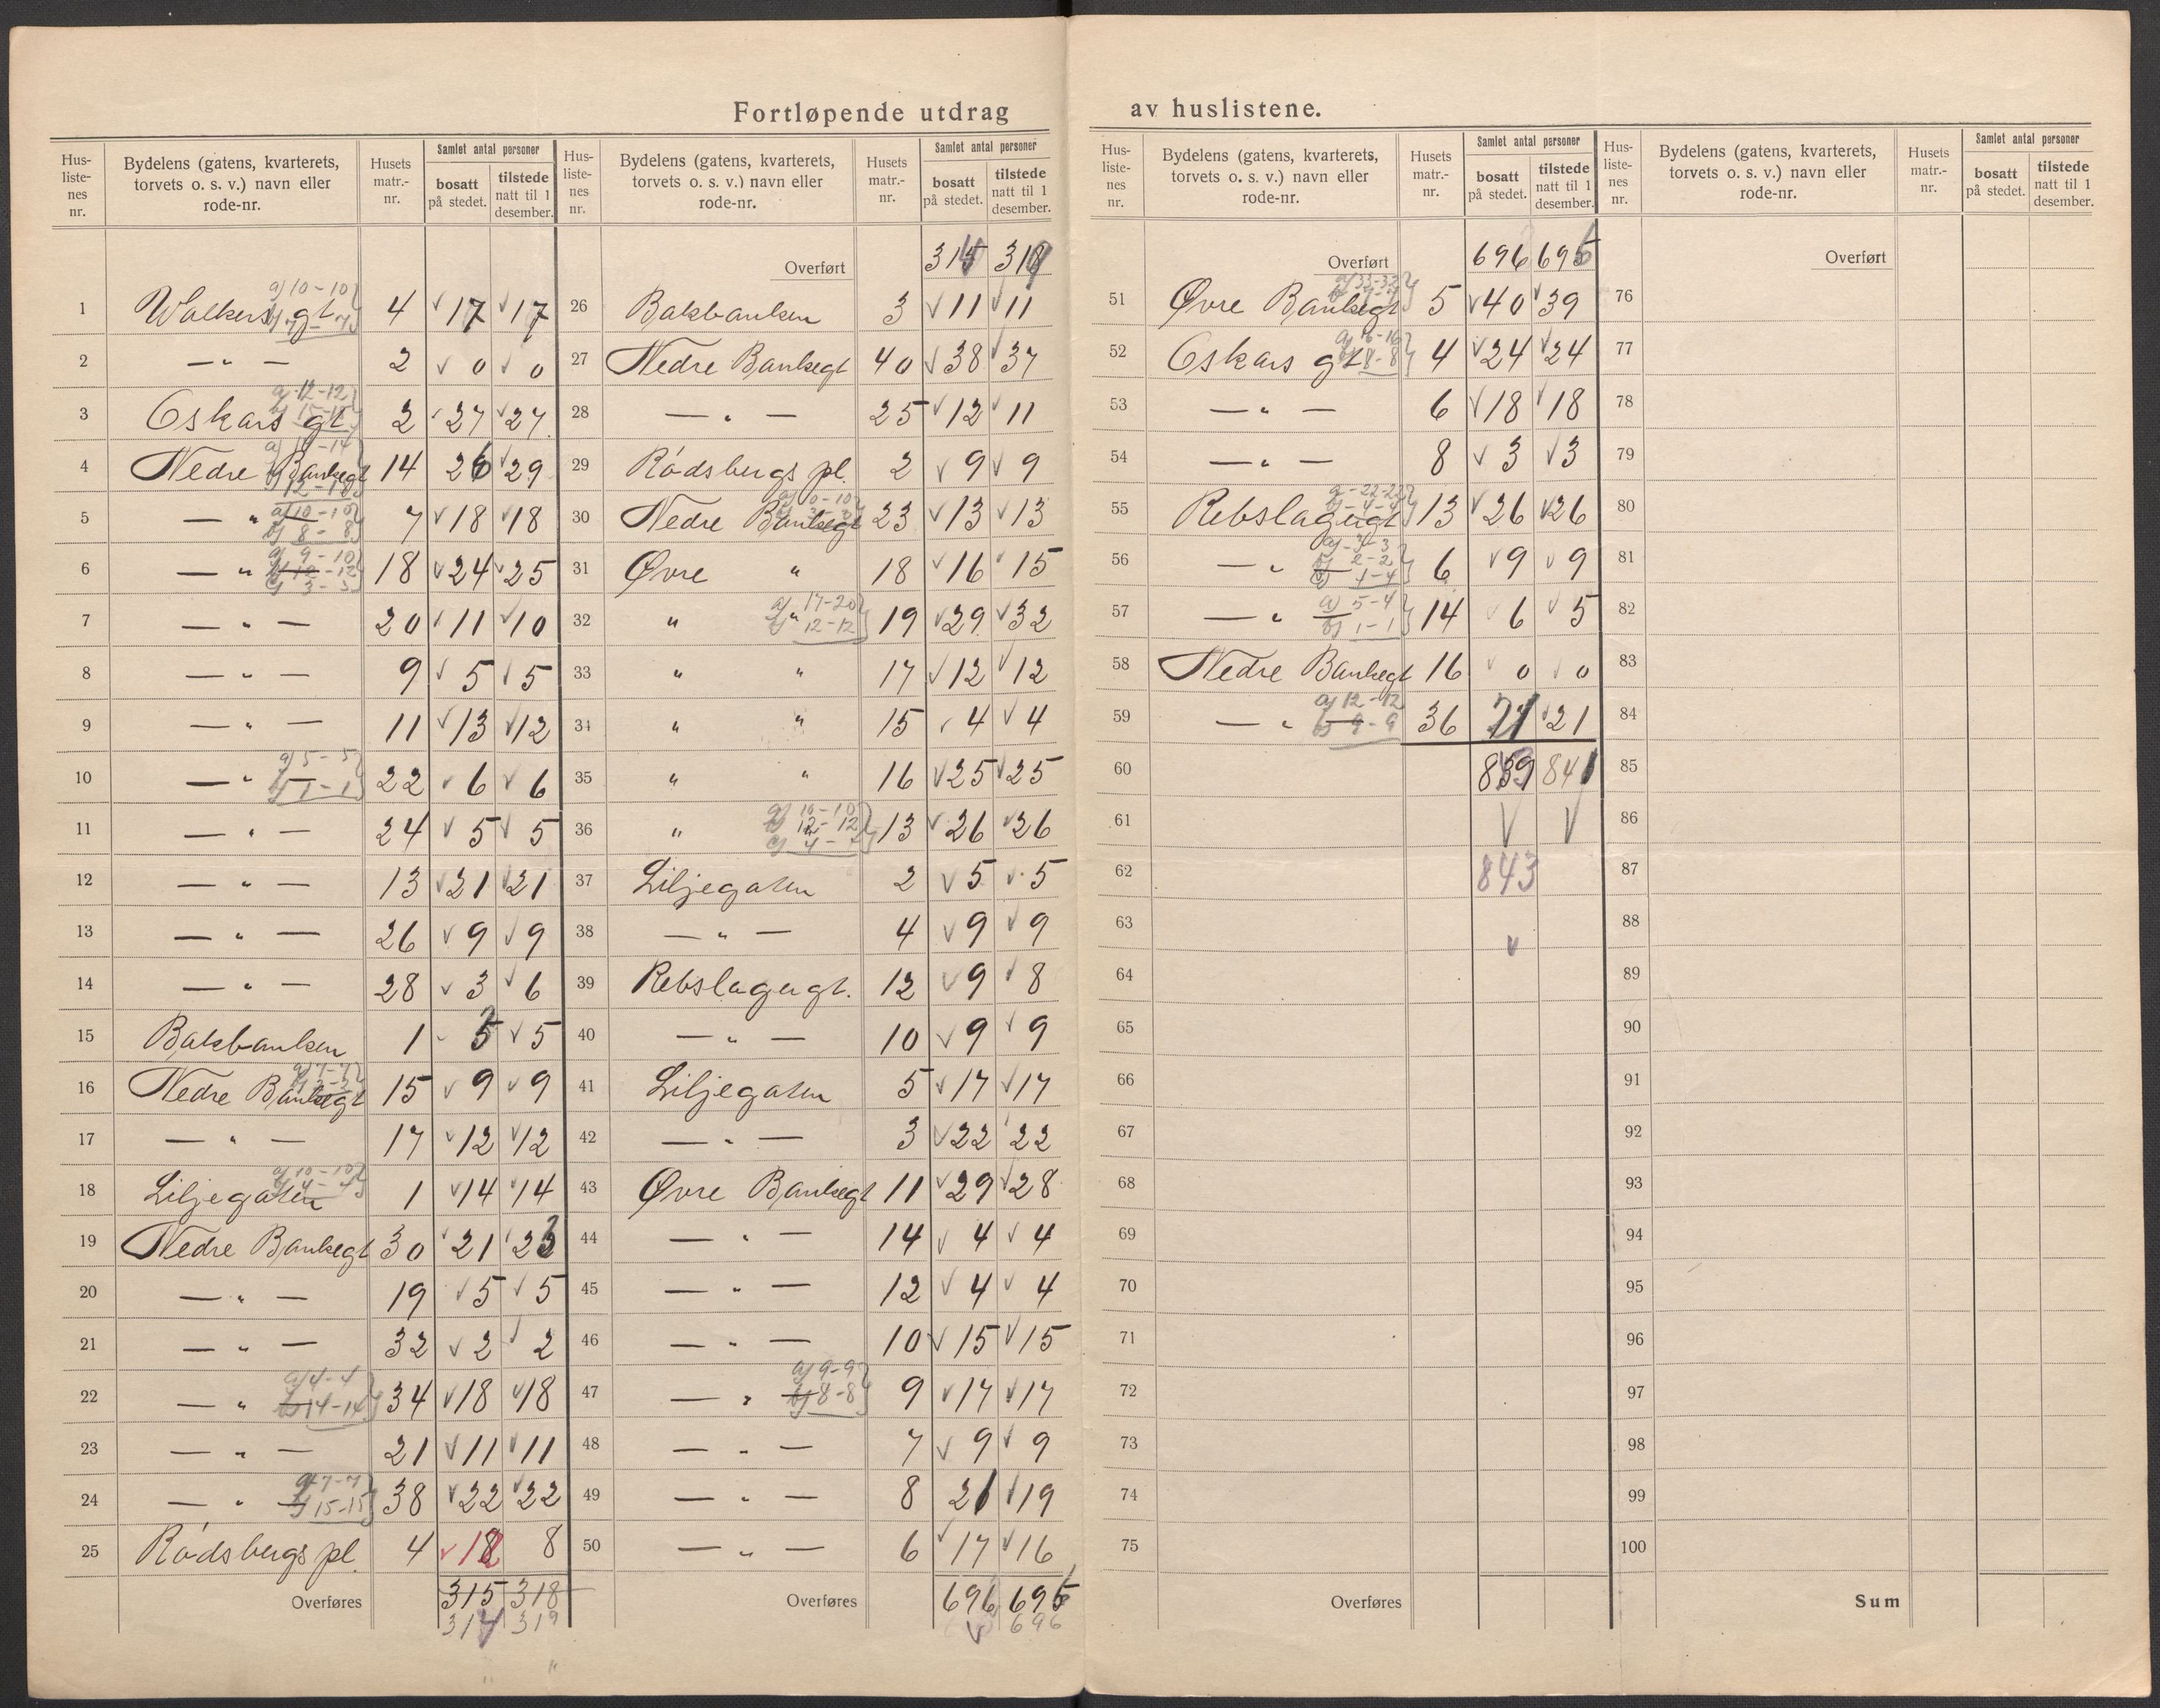 Fortløpende utdrag av huslistene.
Hus- liste- nes nr. Bydelens (gatens, kvarterets, torvets o. s. v.) navn eller rode-nr. Husets matr.- nr. Samlet antal personer bosatt på stedet. tilstede natt til 1 desember.
1 Walkers gt. a) 10-10 4 17 17
2 — " — 2 0 0
3 Oskars gt. a) 12-12 b) 15-15 2 27 27
4 Nedre Bankegt 14 26 29
5 — " a) 10-10 b) 8-8 7 18 18
6 — " a) 9-10 b) 12-12 c) 3-3 18 24 25
7 — " — 20 11 10
8 — " — 9 5 5
9 — " — 11 13 12
10 — " a) 5-5 b) 1-1 22 6 6
11 — " — 24 5 5
12 — " — 13 21 21
13 — " — 26 9 9
14 — " — 28 3 6
15 Bakbanken 1 5 5
16 Nedre Bankegt a) 7-7 b) 2-2 15 9 9
17 — " — 17 12 12
18 Liljegaten a) 10-10 b) 4-4 1 14 14
19 Nedre Bankegt 30 21 23
20 — " — 19 5 5
21 — " — 32 2 2
22 — " a) 4-4 b) 14-14 34 18 18
23 — " — 21 11 11
24 — " a) 7-7 b) 15-15 38 22 22
25 Rødsbergs pl. 4 8
Overføres 315 318
317 319
Hus- liste- nes nr. Bydelens (gatens, kvarterets, torvets o. s. v.) navn eller rode-nr. Husets matr.- nr. Samlet antal personer bosatt på stedet. tilstede natt til 1 desember.
Overført
26 Bakbanken 3 11 11
27 Nedre Bankegt 40 38 37
28 — " — 25 12 11
29 Rødsbergs pl. 2 9 9
30 Nedre Bankegt a) 10-10 b) 3-3 23 13 13
31 Øvre " 18 16 15
32 " " a) 17-20 b) 12-12 19 29 32
33 " " 17 12 12
34 " " 15 4 4
35 " " 16 25 25
36 " a) 10-10 b) 12-12 c) 4-4 13 26 26
37 Liljegaten 2 5 5
38 — " — 4 9 9
39 Rebslagergt. 12 9 8
40 — " — 10 9 9
41 Liljegaten 5 17 17
42 — " — 3 22 22
43 Øvre Bankegt 11 29 28
44 — " — 14 4 4
45 — " — 12 4 4
46 — " — 10 15 15
47 — " a) 9-9 b) 8-8 9 17 17
48 — " — 7 9 9
49 — " — 8 21 19
50 — " — 6 17 16
Overføres 696 695
696
Hus- liste- nes nr. Bydelens (gatens, kvarterets, torvets o. s. v.) navn eller rode-nr. Husets matr.- nr. Samlet antal personer bosatt på stedet. tilstede natt til 1 desember.
Overført 696 695
51 Øvre Bankegt a) 33-32 b) 7-7 5 40 39
52 Oskars gt a) 16-16 b) 8-8 4 24 24
53 — " — 6 18 18
54 — " — 8 3 3
55 Rebslagergt a) 22-22 b) 4-4 13 26 26
56 — " a) 3-3 b) 2-2 c) 4-4 6 9 9
57 — " a) 5-4 b) 1-1 14 6 5
58 Nedre Bankegt 16 0 0
59 — " a) 12-12 b) 9-9 36 21 21
60 839 841
61
62 843
63
64
65
66
67
68
69
70
71
72
73
74
75
Overføres
Hus- liste- nes nr. Bydelens (gatens, kvarterets, torvets o. s. v.) navn eller rode-nr. Husets matr.- nr. Samlet antal personer bosatt på stedet. tilstede natt til 1 desember.
Overført
76
77
78
79
80
81
82
83
84
85
86
87
88
89
90
91
92
93
94
95
96
97
98
99
100
Sum